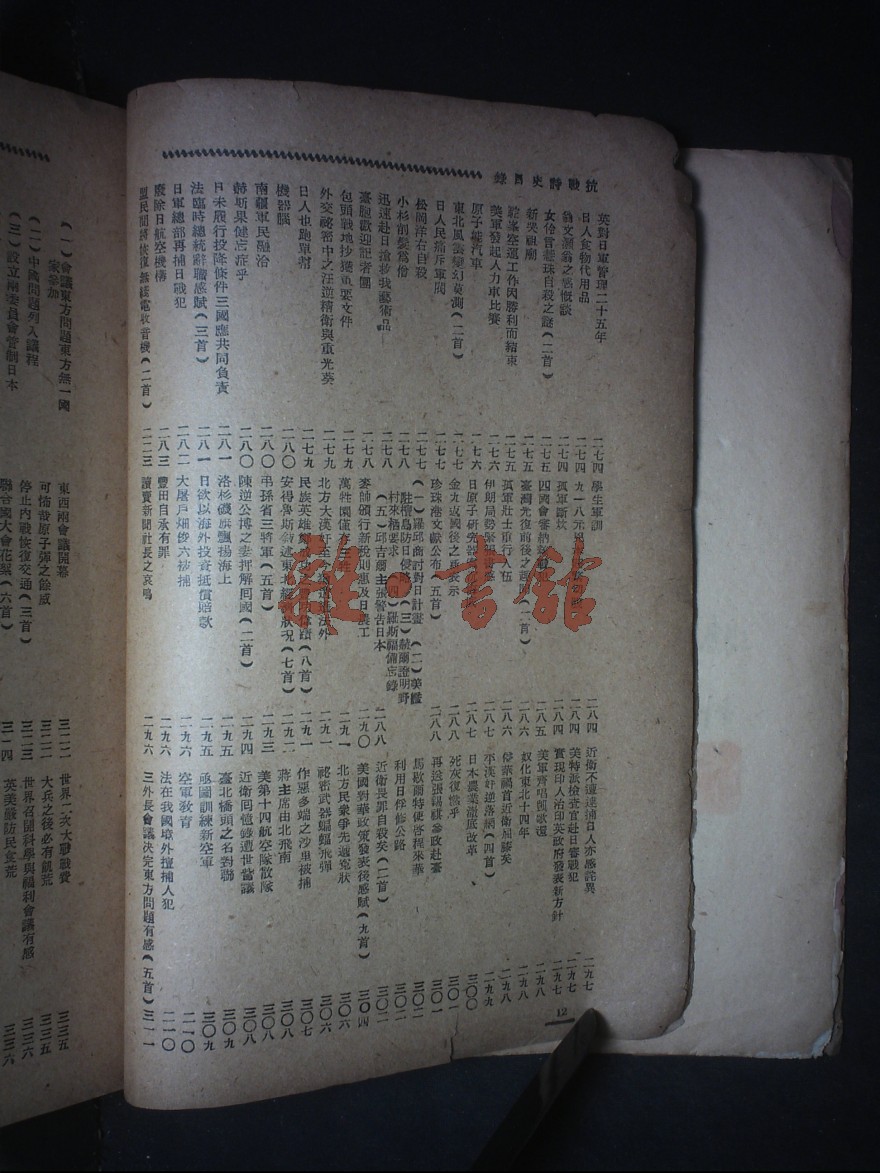 抗戰詩史目錄
英對日軍管理二十五年 二七四
日人食物代用品 二七四
翁文灝翁之感慨談 二七四
女伶言慧珠自殺之謎（二首） 二七五
新央祖廟 二七五
駝峯空運工作因勝利而結束 二七五
美軍發起人力車比賽 二七六
原子能汽車 二七六
東北風雲變幻莫測（二首） 二七六
日人民痛斥軍閥 二七七
松岡洋右自殺 二七七
小杉削髮爲僧 二七八
迅速赴日搶救我藝術品 二七八
臺胞歡迎記者團 二七八
包頭戰地抄獲重要文件 二七九
外交祕密中之汪逆精衛與重光葵 二七九
日人也跑單幫 二七九
機器腦 二八〇
南疆軍民融洽 二八〇
赫斯果健忘症乎 二八〇
日未履行投降條件三國應共同負責 二八一
法臨時總統辭職感賦（三首） 二八一
日軍總部再捕日戰犯 二八二
廢除日航空機構 二八三
盟民間將恢復無線電收音機（二首） 二二三
學生軍訓 二八四
孤軍斷炊 二八四
四國會審納粹戰犯 二八五
臺灣光復前後之 （一首） 二八六
孤軍壯士重行入伍 二八六
伊朗局勢緊張 二八七
日原子研究器 二八七
金九返國後之新表示 二八八
珍珠港文獻公布（五首） 二八八
（一）羅邱商討對日計畫（二）美艦
駐檀島防日侵略（三）赫爾證明野
村來栖要求（四）羅斯福備忘錄
（五）邱吉爾主張警告日本 二八八
麥帥頒行新稅則惠及日農工 二九〇
萬牲園僅存三牲 二九一
北方大漢奸至今 法外 二九一
民族英雄 （八首） 二九一
安得魯斯 述東北經濟狀況（七首） 二九二
弔孫省三將軍（五首） 二九三
陳逆公博之妻押解囘國（二首） 二九四
洛杉磯旗飄揚海上 二九五
日欲以海外投資抵償賠款 二九五
大屠戶畑俊六被捕 二九六
豐田自承有罪 二九六
讀賣新聞社長之哀鳴 二九六
近衛不遭逮捕日人亦感詫異 二九七
美特派檢查官赴日審戰犯 二九七
實現印人治印英政府發表新方針 二九七
美軍齊唱凱歌還 二九八
奴化東北十四年 二九八
侵華禍首近衛屈膝矣 二九八
平漢奸逆落網（四首） 二九九
日本農業澈底改革 三〇〇
死灰復燃乎 三〇〇
再送張錫祺參政赴臺 三〇一
馬歇爾特使啓程來華 三〇二
利用日俘修公路 三〇二
近衛畏罪自殺矣（二首） 三〇二
美國對華政策發表後感賦（九首） 三〇四
北方民衆爭先遞寃狀 三〇六
祕密武器蝙蝠飛彈 三〇六
作惡多端之沙里被捕 三〇七
蔣主席由北飛南 三〇八
美第十四航空隊散隊 三〇八
近衛囘憶錄遭世當議 三〇八
臺北橋頭之名對聯 三〇九
亟圖訓練新空軍 三〇九
空軍教育 二一〇
法在我國境外擅捕人犯 二一〇
三外長會議決定東方問題有感（五首） 三一一
12
（一）會議東方問題東方無一國
家參加
（二）中國問題列入議程
（三）設立兩委員會管制日本
東西兩會議開幕 三二二
可怖哉原子彈之餘威 三二二
停止內戰恢復交通（三首） 三二三
聯合國大會花絮（六首） 三一四
世界二次大戰戰費 三三五
大兵之後必有饑荒 三三五
世界名開科學與福利會議有感 三三六
英美嚴防民食荒 三三六
龍·書舘